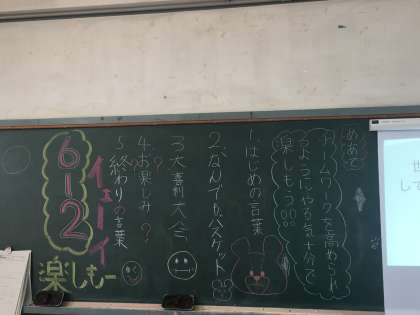 めあて
チームワークを高められ
るようにやる気十分で
楽しもう!!!
1 はじめの言葉
2 なんでもバスケット
3 大喜利大会
4 お楽しみ??
5 終わりの言葉
イェーイ
6-2
楽しもー